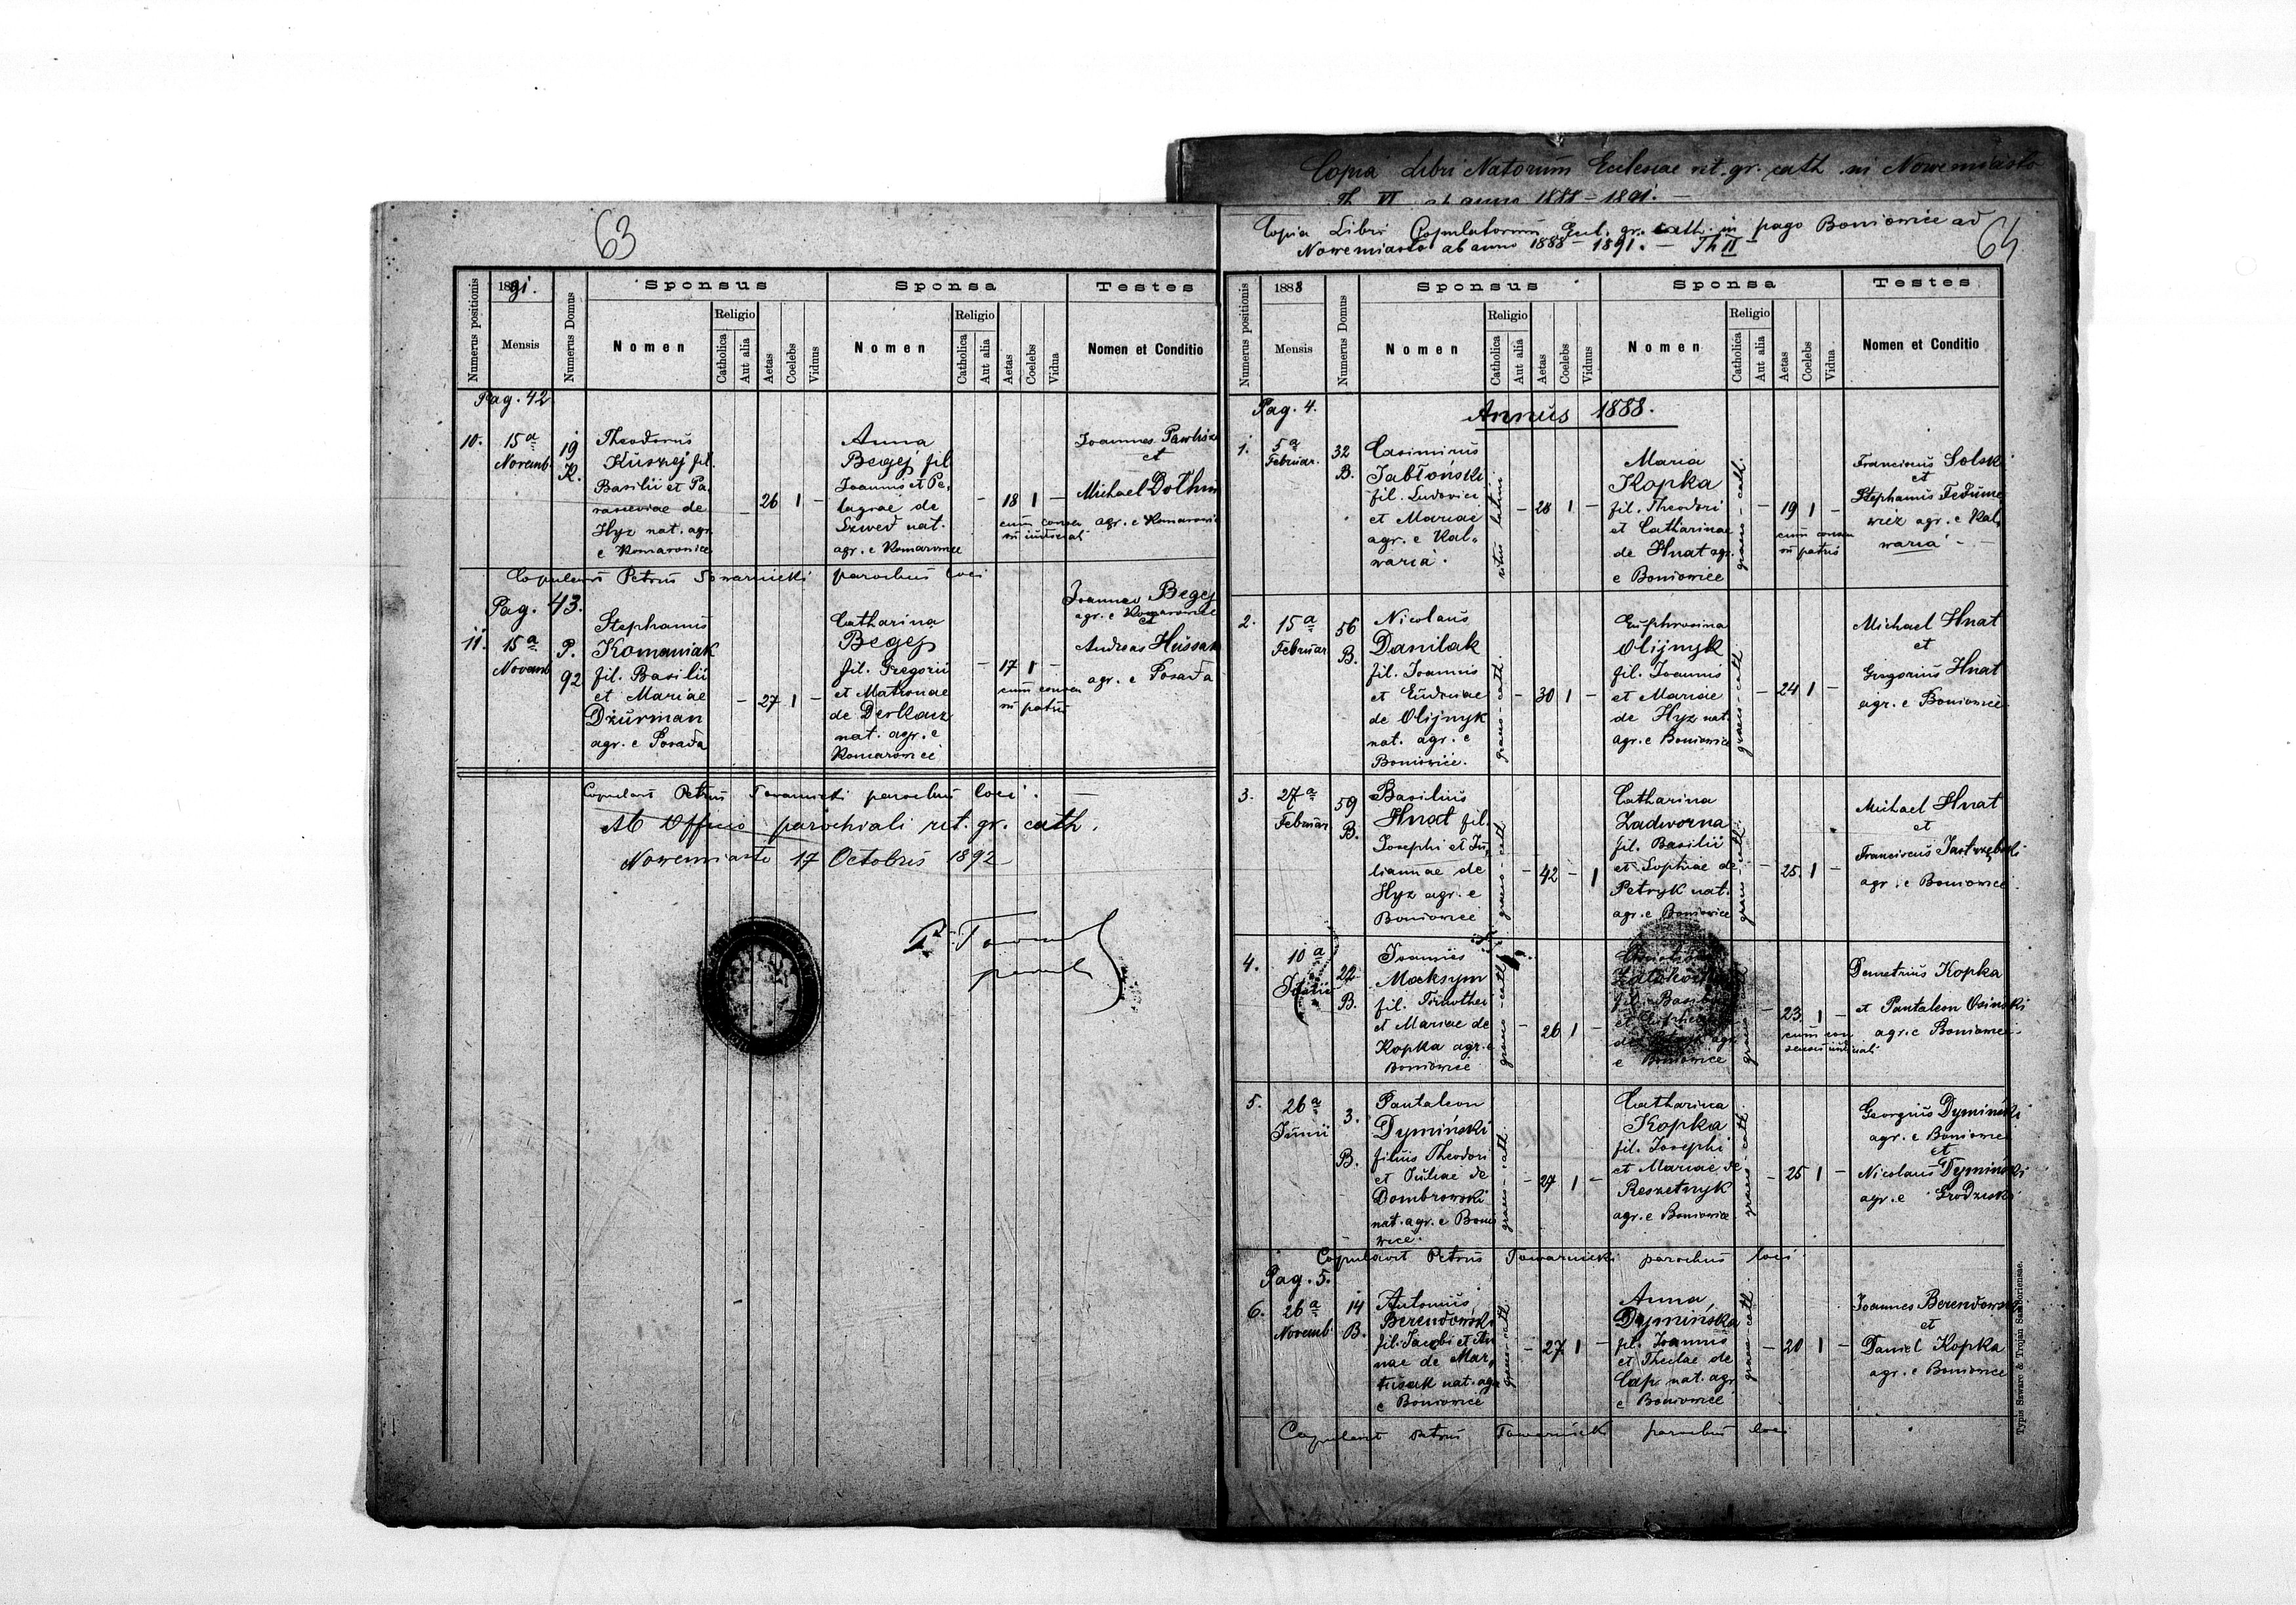 Copia Libri Natorum Ecclesiae rit. gr. cath. in Nowemiasto
Th VI ab anno 1888 - 1891. —
63
1891.
Numerus positionis
Mensis
Numerus Domus
Sponsus
Nomen
Religio
Catholica
Aut alia
Aetas
Coelebs
Viduus
Sponsa
Nomen
Religio
Catholica
Aut alia
Aetas
Coelebs
Vidua
Testes
Nomen et Conditio
Pag. 42
10.
15a
Novemb.
19
K.
Theodorus
Kuszej fil.
Basilii et Pa,
rasceviae de
Hyz nat. agr.
e Komarowice
– 26 1 –
Anna
Begej fil
Joannis et Pe,
lagiae de
Szwed nat.
agr. e Komarowice
– 18 1 –
cum consen
su iudicial
Joannes
et
Michael
agr. e Komarowi
Copulavit Petrus Towarnicki parochus loci
Pag. 43.
11.
15a
Novemb
P.
92
Stephanus
Komaniak
fil. Basilii
et Mariae
Dzurman
agr. e Posada
– 27 1 –
Catharina
Begej
fil. Gregorii
et Matronae
de Derkacz
nat. agr. e
Komarowice
– 17 1 –
cum consen
su patris
Joannes Begej
agr. e Komarowice
et
Andreas Hussak
agr. e Posada
Copulavit Petrus Towarnicki parochus loci. —
Ab Officio parochiali rit. gr. cath.
Nowemiasto 17 Octobris 1892
64
Copia Libri Copulatorum Rit. gr. cath. in pago Boniowice ad
Nowemiasto ab anno 1888 – 1891. — Th II
1888
Numerus positionis
Mensis
Numerus Domus
Sponsus
Nomen
Religio
Catholica
Aut alia
Aetas
Coelebs
Viduus
Sponsa
Nomen
Religio
Catholica
Aut alia
Aetas
Coelebs
Vidua
Testes
Nomen et Conditio
Pag. 4.
Annus 1888.
1.
5a
Februar.
32
B.
Casimirus
Jabłoński
fil. Ludovici
et Mariae
agr. e Kal,
waria.
ritus latini
– 28 1 –
Maria
Kopka
fil. Theodori
et Catharinae
de Hnat agr.
e Boniowice
graeco-cath.
– 19 1 –
cum consen
su patris
Franciscus Solski
et
Stephanus Fedune
wicz agr. e Kal,
waria –
2.
15a
Februar
56
B.
Nicolaus
Danilak
fil. Joannis
et Eudociae
de Olijnyk
nat. agr. e
Boniowice.
graeco-cath.
– 30 1 –
Euphrosina
Olijnyk
fil. Joannis
et Mariae
de Hyz nat.
agr. e Boniowice
graeco-cath
– 24 1 –
Michael Hnat
et
Gregorius Hnat
agr. e Boniowice
3.
27a
Februar
59
B.
Basilius
Hnat fil.
Josephi et Ju,
liannae de
Hyz agr. e
Boniowice
graeco-cath
– 42 – 1
Catharina
Zadworna
fil. Basilii
et Sophiae de
Petryk nat.
agr. e Boniowice
graeco-cath.
– 25. 1 –
Michael Hnat
et
Franciscus Jastrzębski
agr. e Boniowice.
4.
10a
22
B.
Joannes
Maksym
fil. Timothei
et Mariae de
Kopka agr. e
Boniowice
graeco-cath
– 26 1 –
fil. Basilii
e Boniowice
graeco-cath
– 23. 1 –
cum con
sensu iudiciali
Demetrius Kopka
et Pantaleon Osinski
agr. e Boniowice.
5.
26a
Junii
3.
B.
Pantaleon
Dyminski
filius Theodori
et Juliae de
Dombrowski
nat. agr. e Bonio
wice.
graeco-cath.
– 27 1 –
Catharina
Kopka
fil. Josephi
et Mariae de
Reszetnyk
agr. e Boniowice
graeco-cath.
– 25 1 –
Georgius Dymiński
agr. e Boniowice
et
Nicolaus Dymiński
agr. e Grodzisko
Copulavit Petrus Towarnicki parochus loci
Pag. 5.
6.
26a
Novemb.
14
B.
Antonius
Berendowski
fil. Jacobi et An
nae de Mar,
tusak nat. agr
e Boniowice
graeco-cath.
– 27 1 –
Anna
Dyminska
fil. Joannis
et Theclae de
Cap nat. agr
e Boniowice
graeco-cath
– 20 1 –
Joannes Berendowski
et
Daniel Kopka
agr. e Boniowice
Copulavit Petrus Towarnicki parochus loci
Typis Szwarc & Trojan Samboriensae.